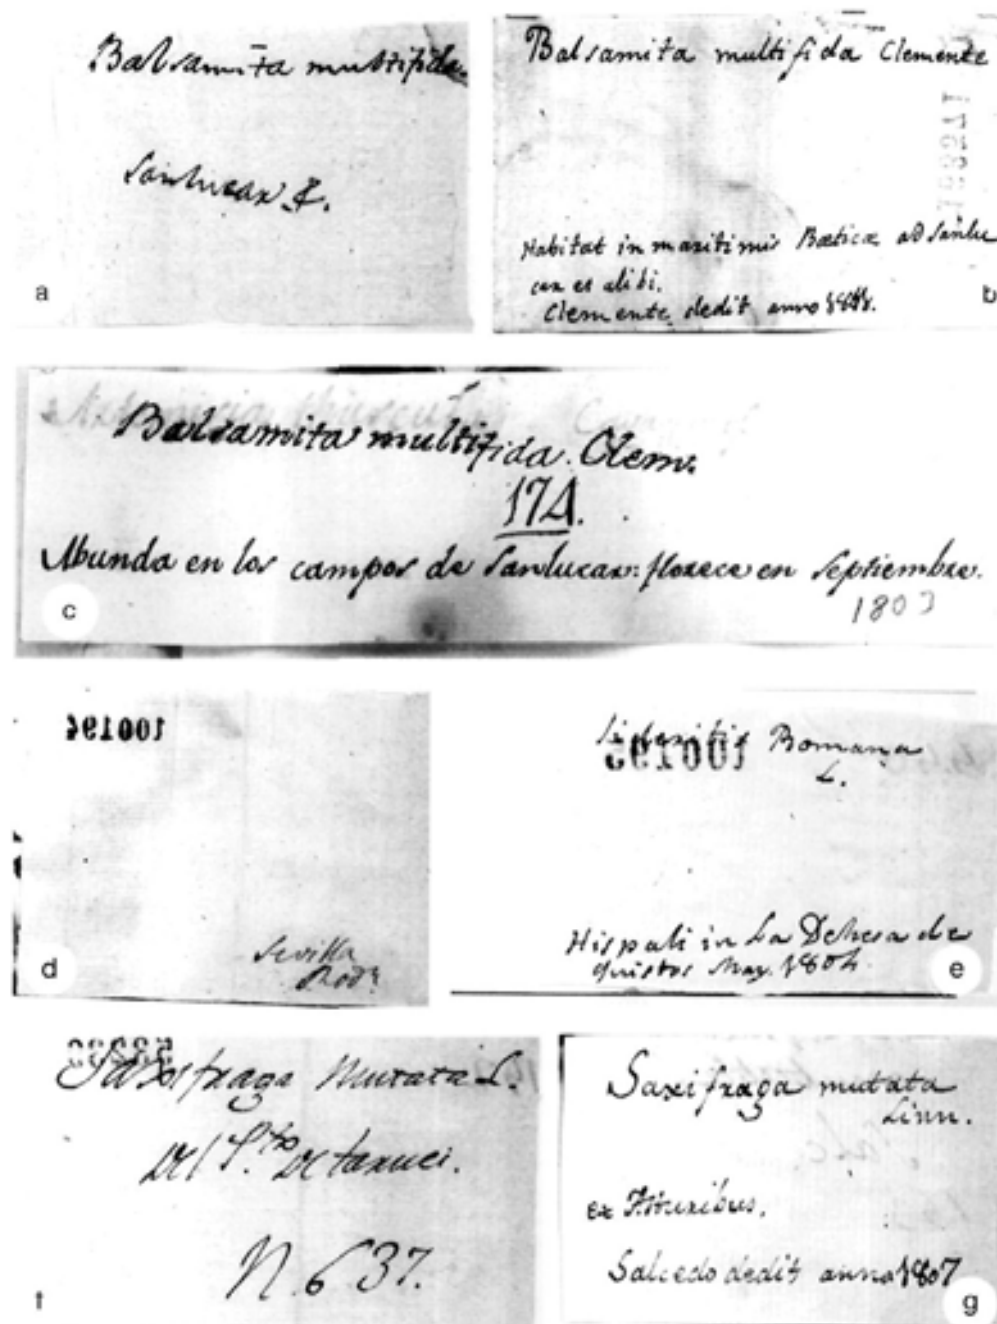 Balsamita multifida
Sanlucar &.
a
Balsamita multifida Clemente
188571
Habitat in maritimis Bætica ad Sanlu
car et alibi.
Clemente dedit anno
b
Balsamita multifida. Clem.
174.
Abunda en los campos de Sanlucar: florece en Septiembre.
1803
c
100194
Sevilla
Rodz
d
100195
Sideritis Romana
L.
Hispali in La Dehesa de
quistos May. 1804.
e
Saxifraga Mutata L.
Del P.to De taruei.
N. 637.
f
Saxifraga mutata
Linn.
Ex Asturibus.
Salcedo dedit anno 1807
g